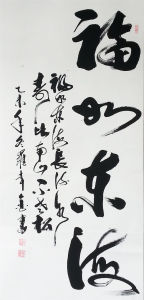 福如东海
福如东海长流水
寿比南山不老松
乙未年冬